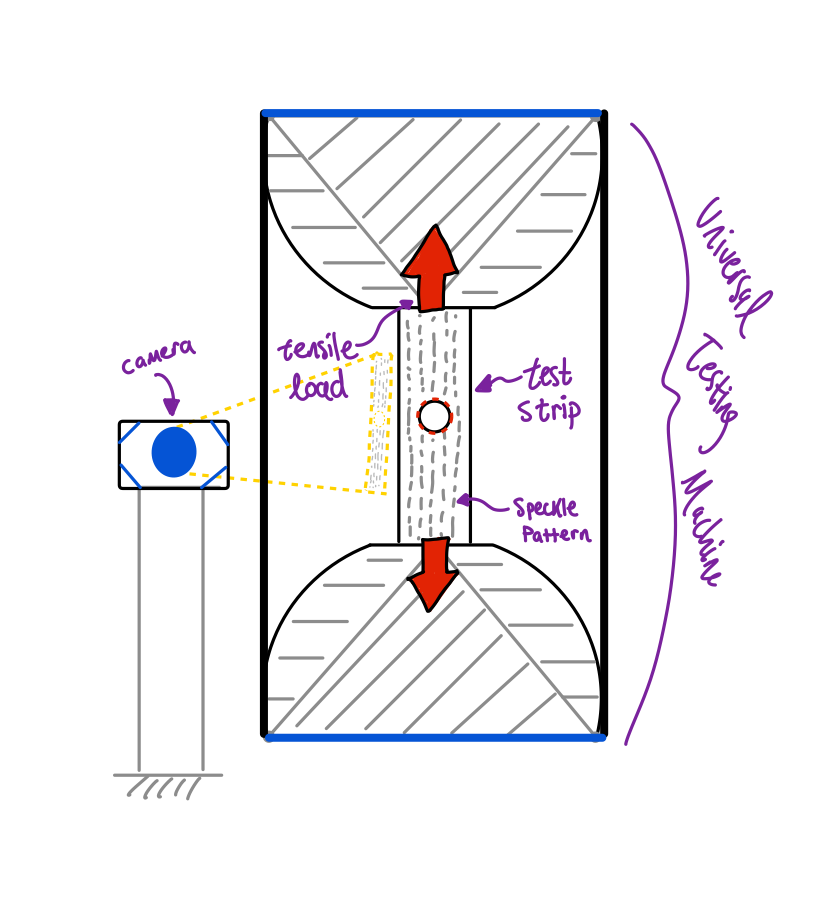 camera
tensile
load
test
strip
Speckle
Pattern
Universal
Testing
Machine